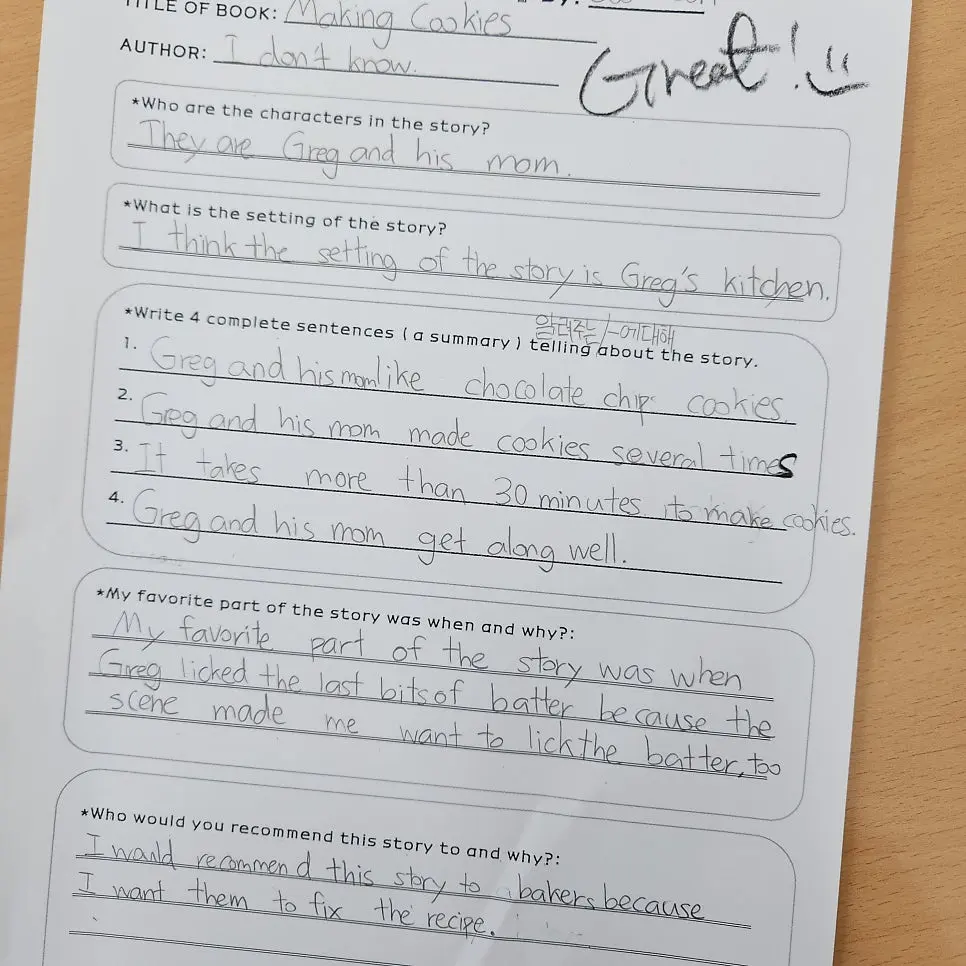 TITLE OF BOOK: Making Cookies
AUTHOR: I don't know.
Great!
*Who are the characters in the story?
They are Greg and his mom.
*What is the setting of the story?
I think the setting of the story is Greg's kitchen.
알려주는 / ~에 대해
*Write 4 complete sentences ( a summary ) telling about the story.
1. Greg and his mom like chocolate chip cookies.
2. Greg and his mom made cookies several times
3. It takes more than 30 minutes to make cookies.
4. Greg and his mom get along well.
*My favorite part of the story was when and why?:
My favorite part of the story was when
Greg licked the last bits of batter because the
scene made me want to lick the batter, too
*Who would you recommend this story to and why?:
I would recommend this story to bakers because
I want them to fix the recipe.